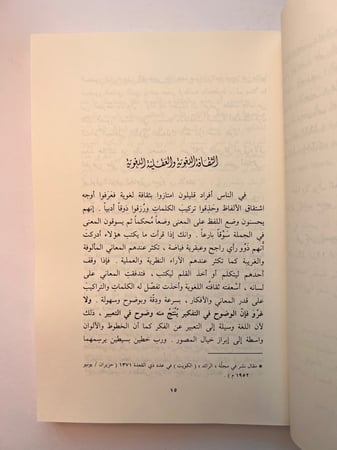 الثقافة اللغوية والعقلية اللغوية
في الناس أفراد قليلون امتازوا بثقافة لغوية فعَرفوا أوجه
اشتقاق الألفاظ وحذِقوا تركيب الكلمات ورُزقوا ذوقاً أدبياً . إنهم
يحسنون وضع اللفظ على المعنى وضعاً مُحكماً ثم يسوقون المعنى
في الجملة سَوْقاً بارعاً . وأنت إذا قرأت ما يكتب هؤلاء أدركت
أنهم ذوو رأي راجح وعبقرية فياضة ، تكثر عندهم المعاني المألوفة
والغريبة كما تكثر عندهم الآراء النظرية والعملية . فإذا وقف
أحدهم ليتكلم أو أخذ القلم ليكتب ، فتدفقت المعاني على
لسانه ، أسعفته ثقافته اللغوية وأخذت تفصّل له الكلمات والتراكيب
على قدر المعاني والأفكار ، بسرعة ودقّة وبوضوح وسهولة . ولا
غَرْوَ فإن الوضوح في التفكير يُنتَجُ منه وضوح في التعبير ، ذلك
لأن اللغة وسيلة إلى التعبير عن الفكر كما أن الخطوط والألوان
واسطة إلى إبراز خيال المصور . ورب خطين بسيطين يرسمهما
* مقال نشر في مجلة ، الرائد ، ( الكويت ) في عدد ذي القعدة ١٣٧١ ( حزيران / يونيو
١٩٥٢ م ) .
١٥